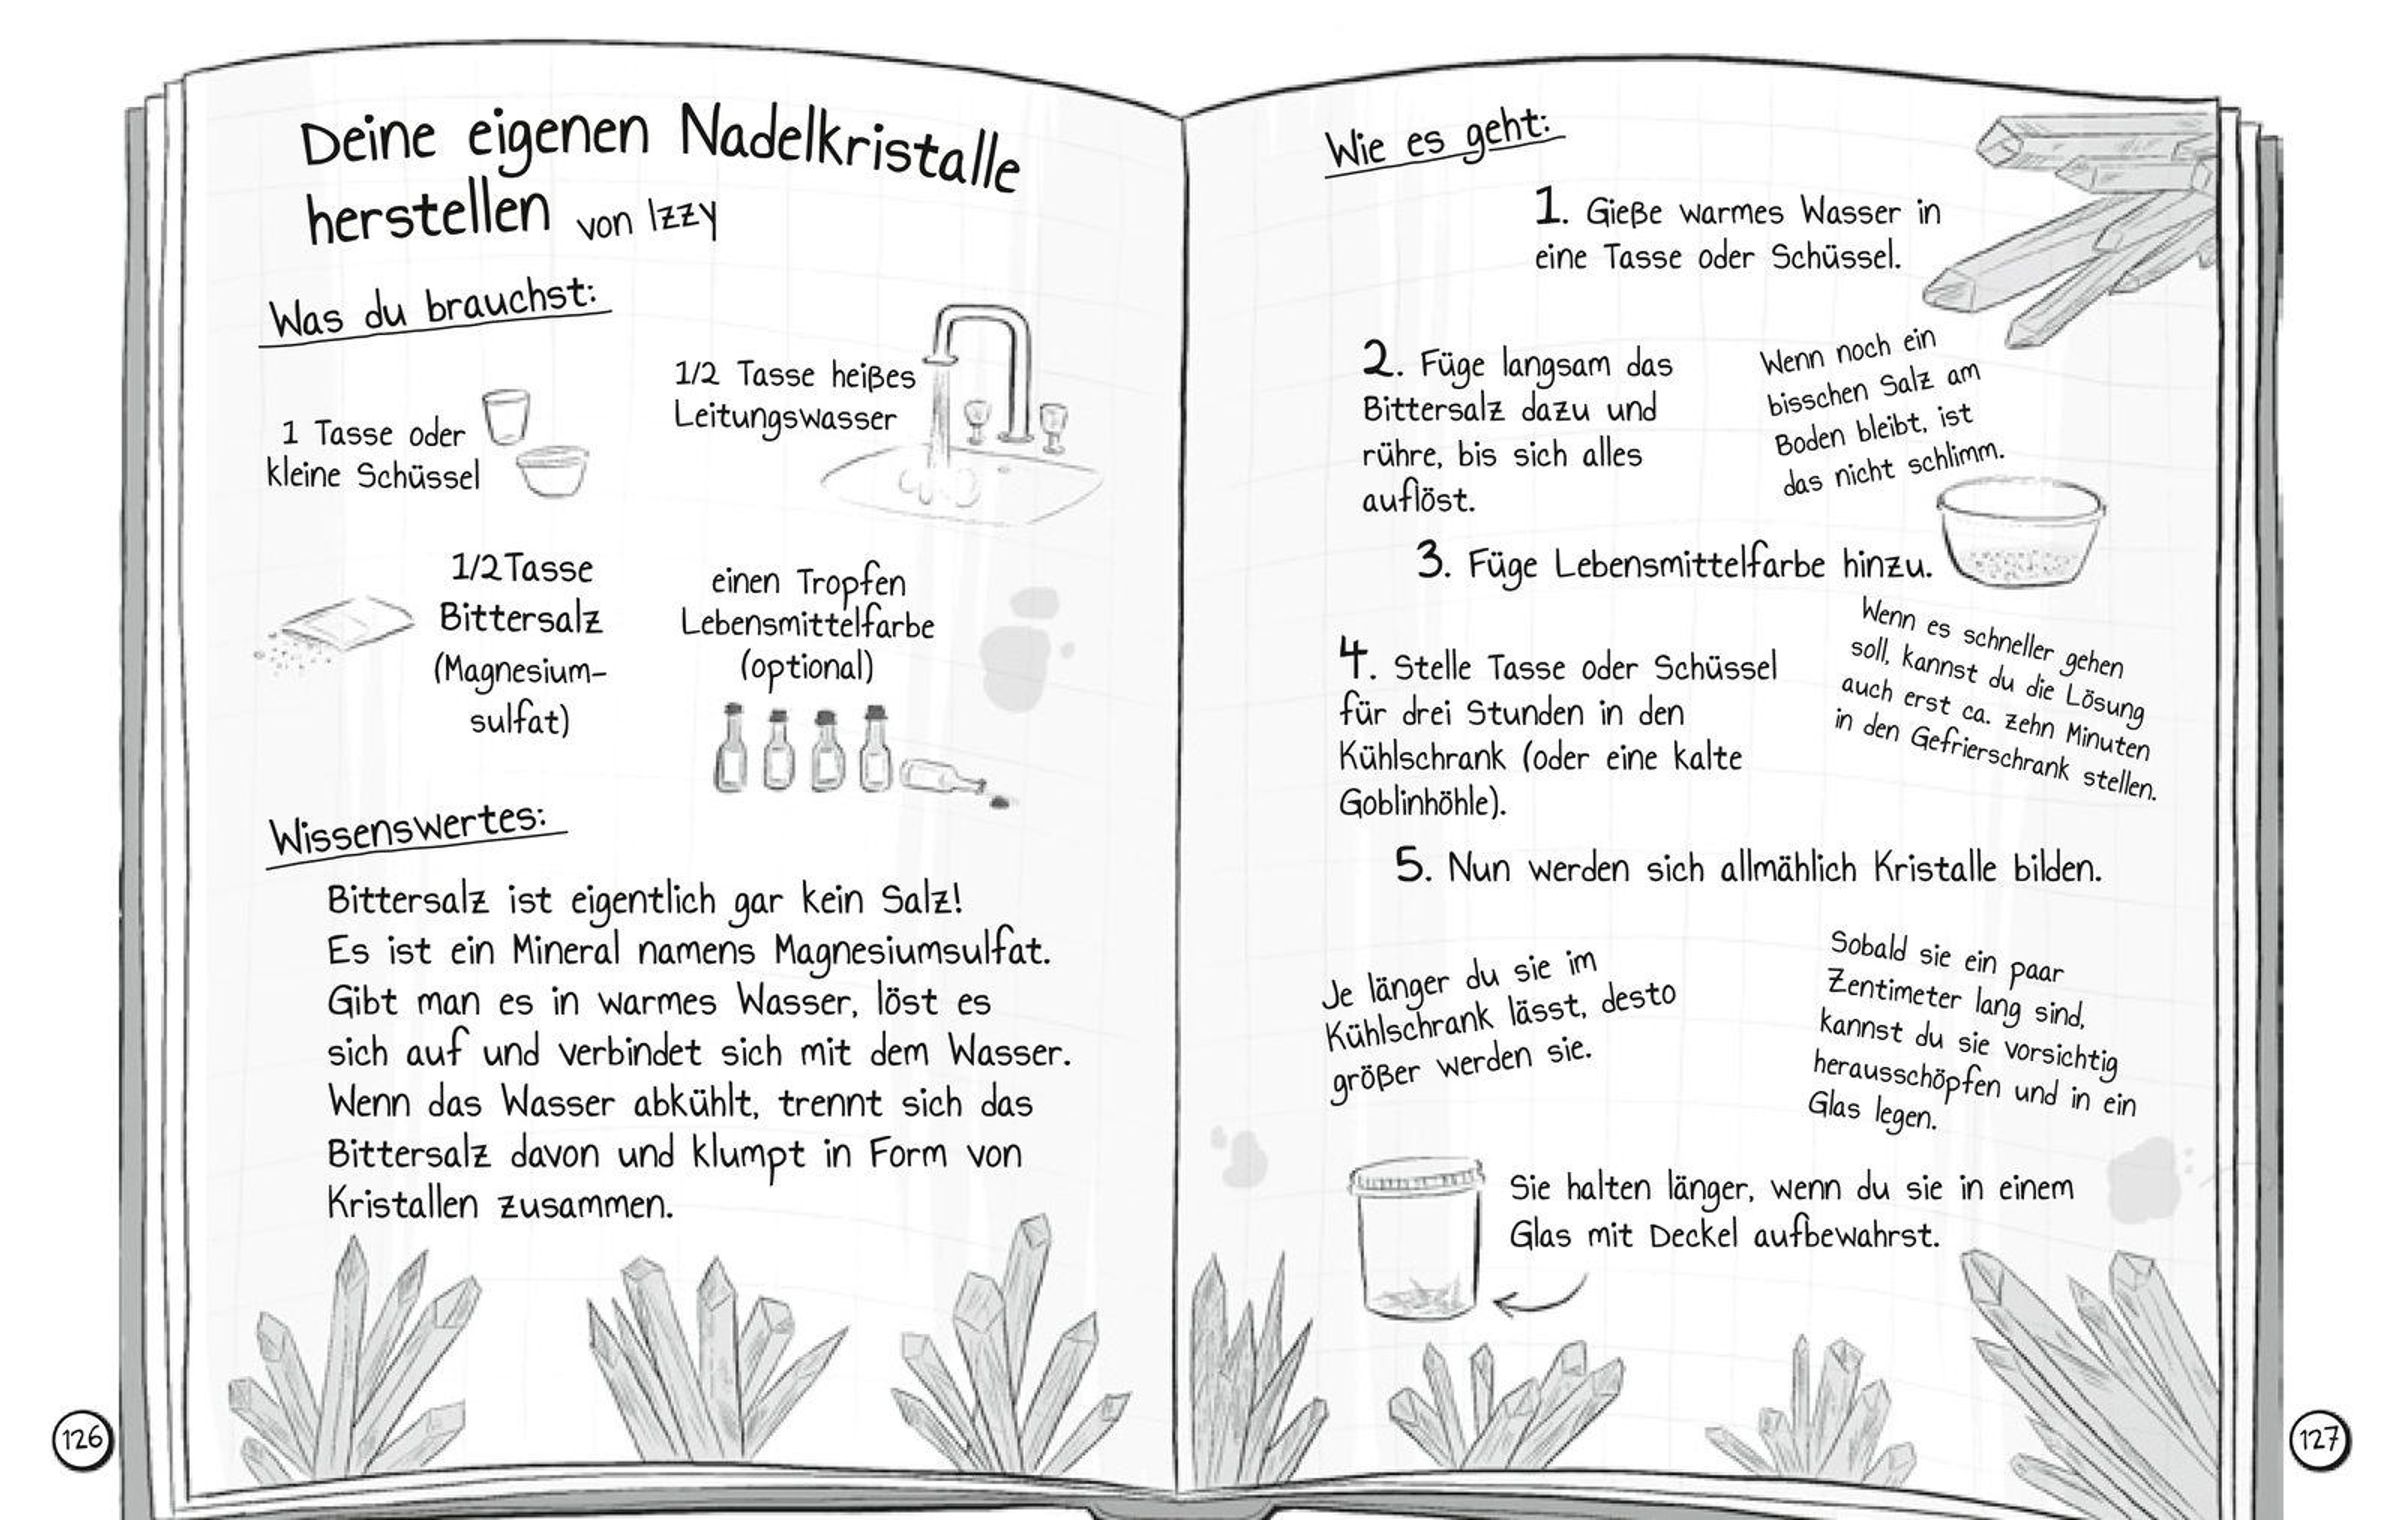 Deine eigenen Nadelkristalle
herstellen von Izzy
Was du brauchst:
1 Tasse oder
kleine Schüssel
1/2 Tasse heißes
Leitungswasser
1/2 Tasse
Bittersalz
(Magnesium-
sulfat)
einen Tropfen
Lebensmittelfarbe
(optional)
Wissenswertes:
Bittersalz ist eigentlich gar kein Salz!
Es ist ein Mineral namens Magnesiumsulfat.
Gibt man es in warmes Wasser, löst es
sich auf und verbindet sich mit dem Wasser.
Wenn das Wasser abkühlt, trennt sich das
Bittersalz davon und klumpt in Form von
Kristallen zusammen.
126
Wie es geht:
1. Gieße warmes Wasser in
eine Tasse oder Schüssel.
2. Füge langsam das
Bittersalz dazu und
rühre, bis sich alles
auflöst.
Wenn noch ein
bisschen Salz am
Boden bleibt, ist
das nicht schlimm.
3. Füge Lebensmittelfarbe hinzu.
4. Stelle Tasse oder Schüssel
für drei Stunden in den
Kühlschrank (oder eine kalte
Goblinhöhle).
Wenn es schneller gehen
soll, kannst du die Lösung
auch erst ca. zehn Minuten
in den Gefrierschrank stellen.
5. Nun werden sich allmählich Kristalle bilden.
Je länger du sie im
Kühlschrank lässt, desto
größer werden sie.
Sobald sie ein paar
Zentimeter lang sind,
kannst du sie vorsichtig
herausschöpfen und in ein
Glas legen.
Sie halten länger, wenn du sie in einem
Glas mit Deckel aufbewahrst.
127